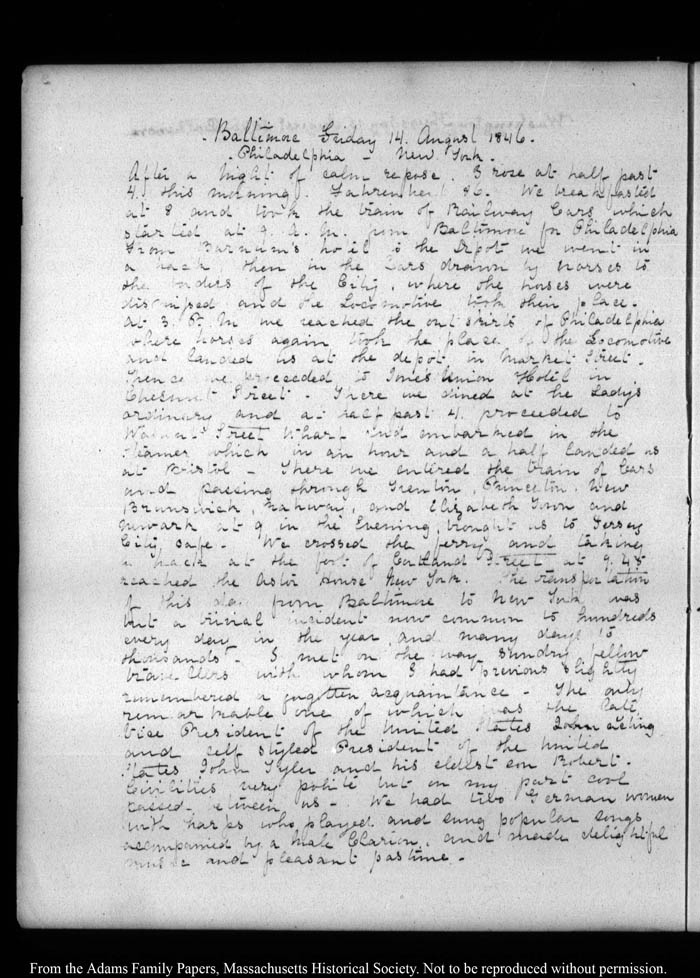 - Baltimore Friday 14. August 1846.
- Philadelphia - New York -
After a Night of calm repose. I rose at half past
4. this morning. Fahrenheit 86. We breakfasted
at 8 and took the train of Railway Cars which
started at 9. A. M. from Baltimore for Philadelphia
From Barnum's hotel to the Depot we went in
a hack, then in the Cars drawn by horses to
the borders of the City, where the horses were
dismissed and the Locomotive took their place.
At 3. P. M we reached the outskirts of Philadelphia
where horses again took the place of the Locomotive
and landed us at the depot in Market Street -
Thence we proceeded to Jones' Union Hotel in
Chesnut Street - There we dined at the Lady's
ordinary and at half past 4. proceeded to
Walnut Street Wharf and embarked in the
steamer which in an hour and a half landed us
at Bristol - There we entered the train of Cars
and passing through Trenton, Princeton, New
Brunswick, Rahway, and Elizabeth Town and
Newark at 9 in the Evening, brought us to Jersey
City safe - We crossed the ferry and taking
a hack at the foot of Cortland Street at 9.45
reached the Astor House New York. The transportation
of this day from Baltimore to New York was
but a trivial incident now common to hundreds
every day in the year and many days to
thousands - I met on the way sundry fellow
travellers with whom I had previous slightly
remembered a forgotten acquaintance - The only
remarkable one of which was the late
Vice President of the United States John acting
and self styled President of the United
States John Tyler and his eldest son Robert -
Civilities very polite but on my part cool
passed between us - We had two German women
with harps who played and sung popular songs
accompanied by a male Clarion, and made delightful
music and pleasant pastime -
From the Adams Family Papers, Massachusetts Historical Society. Not to be reproduced without permission.